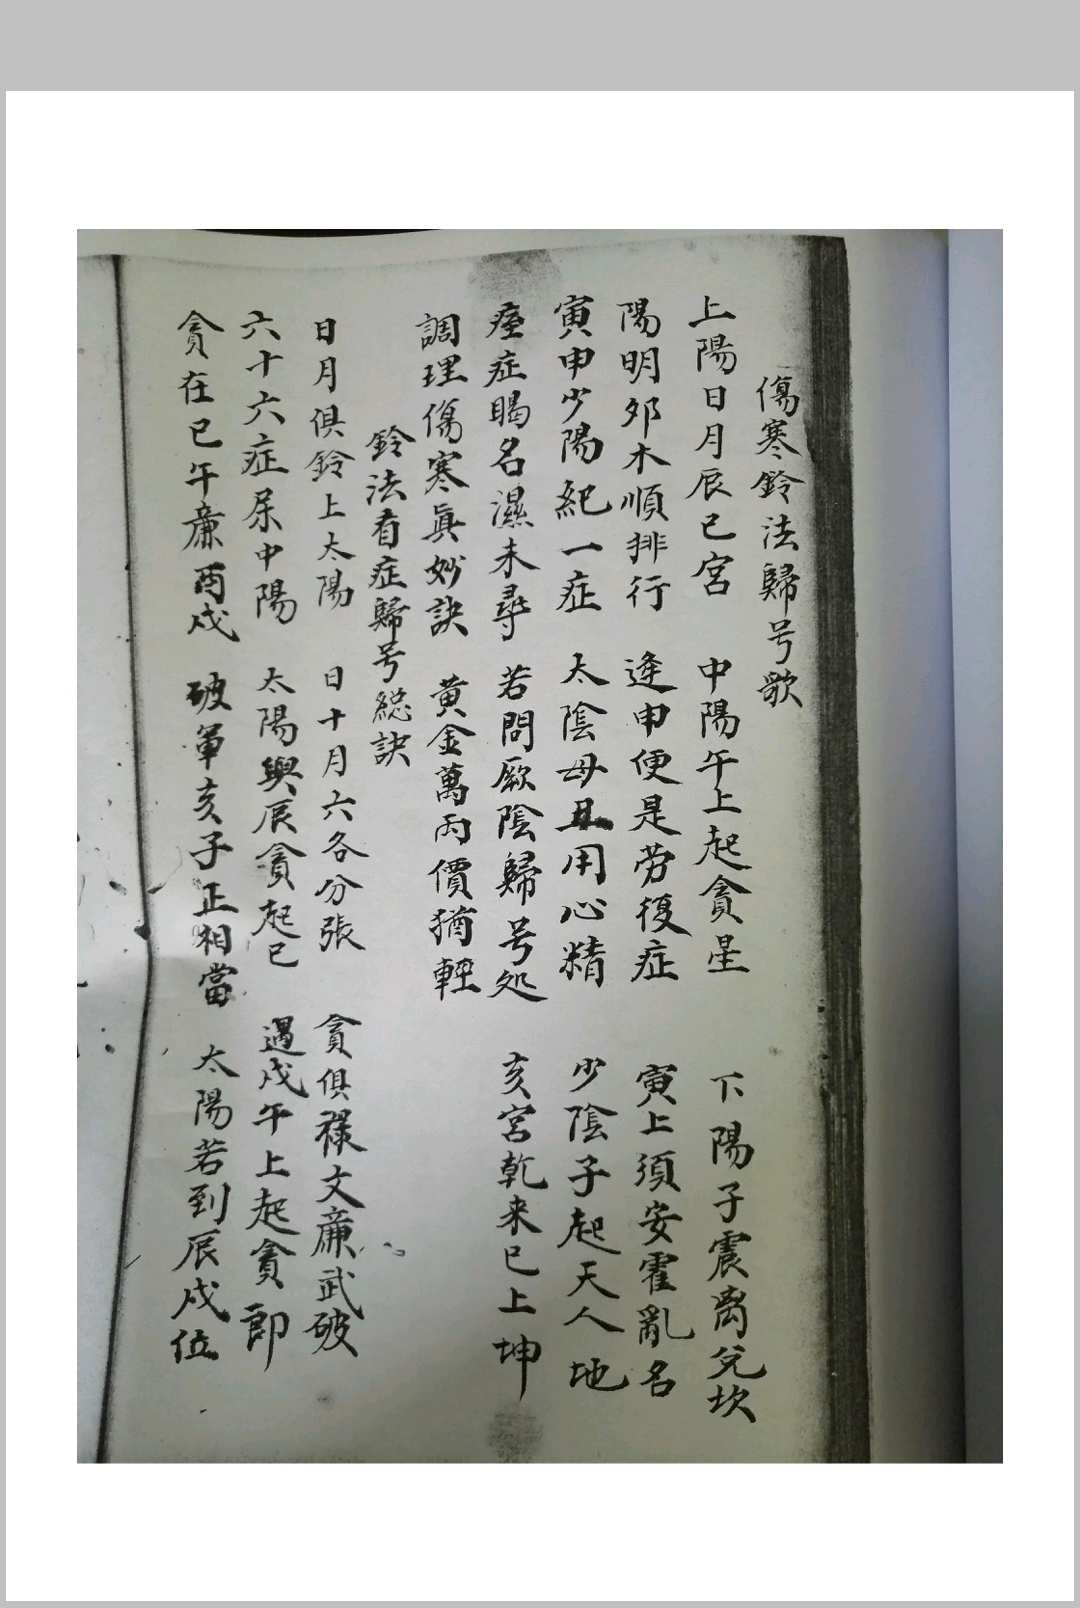 傷寒鈴法歸号歌
上陽日月辰巳宮　中陽午上起貪星　下陽子震离兌坎
陽明夘木順排行　逢申便是劳復症　寅上須安霍亂名
寅申少陽紀一症　太陰母丑用心精　少陰子起天人地
痓症暍名濕未尋　若問厥陰歸号処　亥宮乾来巳上坤
調理傷寒眞妙訣　黄金萬両價猶輕
鈴法看症歸号総訣
日月俱鈴上太陽　日十月六各分張　貪俱祿文廉武破
六十六症尿中陽　太陽與辰貪起巳　遇戍午上起貪郎
貪在巳午廉酉戍　破軍亥子正相當　太陽若到辰戍位